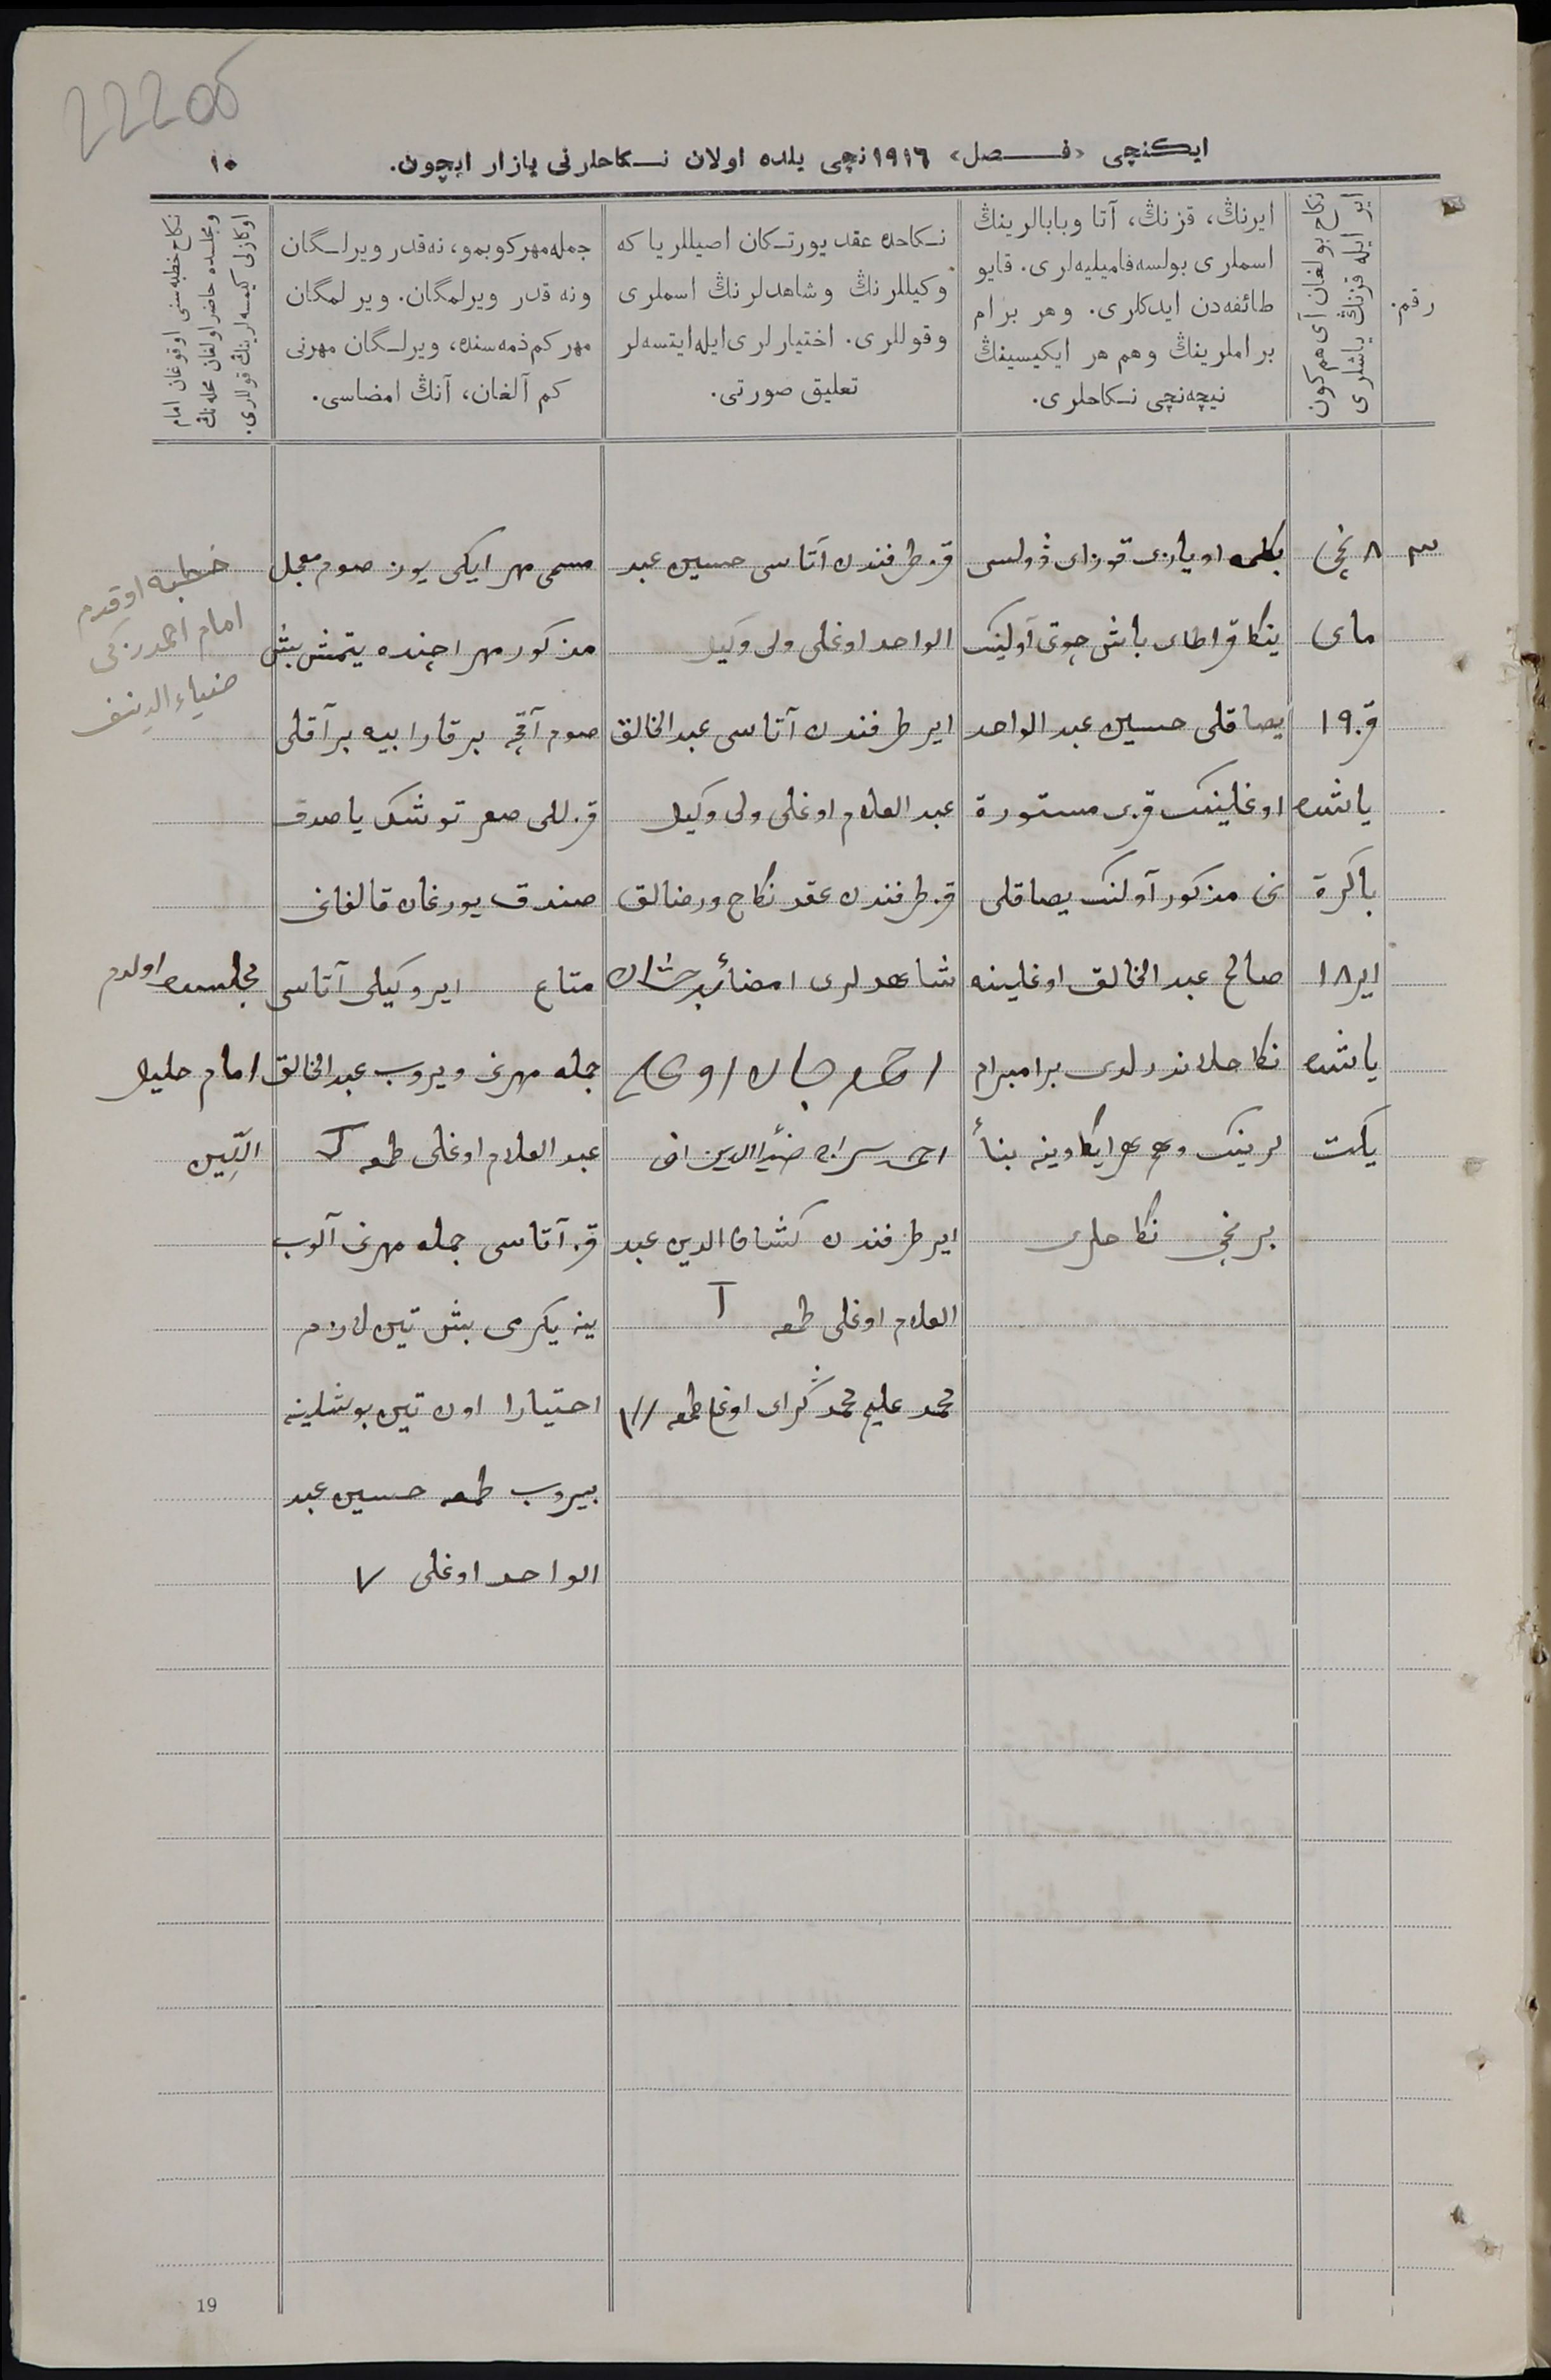 22205
ایکنچی «فصل» ۱۹۱٦نچی یلده اولان نکاحلرنی یازار ایچون.
۱۰
رقم.
نکاح بولغان آی هم کون
ایر ایله قزنڭ یاشلری
ایرنڭ، قزنڭ، آتا وبابالرینڭ
اسملری بولسه فامیلیه‌لری. قایو
طائفه‌دن ایدکلری. وهر برام
براملرینڭ وهم هر ایکیسینڭ
نیچه‌نچی نکاحلری.
نکاحده عقد یورتکان اصیللریا که
وکیللرنڭ وشاهدلرنڭ اسملری
وقوللری. اختیارلری ایله ایتسه‌لر
تعلیق صورتی.
جمله مهر کوبمو، نه‌قدر ویرلگان
ونه قدر ویرلمگان. ویرلمگان
مهر کم ذمه‌سنده، ویرلگان مهرنی
کم آلغان، آنڭ امضاسی.
نکاح خطبه‌سنی اوقوغان امام
ومجلسده حاضر اولغان محله‌نڭ
اوکازلی کیمسه‌لرینڭ قوللری.
۳
۸ نچی
مای
قز ۱۹
یاشده
باکرة
ایر ۱۸
یاشده
یکت
اویازی ڤولسی
ینکا قراطای باش آولینک
یصاقلی حسین عبد الواحد
اوغلینک قزی مستورة
نی مذکور آولنک یصاقلی
صالح عبد الخالق اوغلینه
نکاحلاندرلدی برامبرام
لرینک وهم هر ایکاوینه بناً
برنچی نکاحلری
قز طرفندن آتاسی حسین عبد
الواحد اوغلی ولی وکیل
ایر طرفندن آتاسی عبد الخالق
عبد العلام اوغلی ولی وکیل
قز طرفندن عقد نکاح ورضالق
شاهدلری
ایر طرفندن کشاف الدین عبد
العلام اوغلی طمغه T
محمد علیم محمد کرای اوغلی طمغه
مسمی مهر ایکی یوز صوم معجل
مذکور مهر اچنده یتمش بش
صوم آقچه بر قارا بیه بر آقلی
توشک یاصدق
صندق یورغان قالغانی
متاع ایر وکیلی آتاسی
جمله مهرنی ویروب عبد الخالق
عبد العلام اوغلی طمغه T
قز آتاسی جمله مهرنی آلوب
ینه یکرمی بش تین لازم
احتیارا اون تین بوشلینه
بیروب طمغه حسین عبد
الواحد اوغلی V
خطبه اوقدم
امام احمد زکی
ضیاءالدینف
مجلسده اولدم
امام خلیل
19